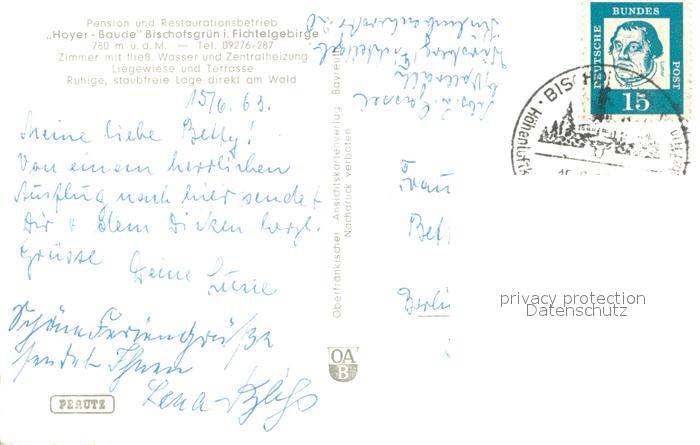 Pension und Restaurationsbetrieb
„Hoyer - Baude" Bischofsgrün i. Fichtelgebirge
780 m ü. d. M. — Tel. 09276/287
Zimmer mit fließ. Wasser und Zentralheizung
Liegewiese und Terrasse
Ruhige, staubfreie Lage direkt am Wald
15/6. 63.
Meine liebe Betty!
Von einem herrlichen
Ausflug nach hier sendet
Dir u dem Dicken herzl.
Grüsse Deine Luise
Schöne Feriengrüße
sendet Ihnen
Lena
PERUTZ
Oberfränkischer Ansichtskartenverlag Bayreuth
Nachdruck verboten
OA
B
Abs. L.
Frau
Bett
Berlin
DEUTSCHE
BUNDES
POST
15
BISCH
Höhenluftk
privacy protection
Datenschutz